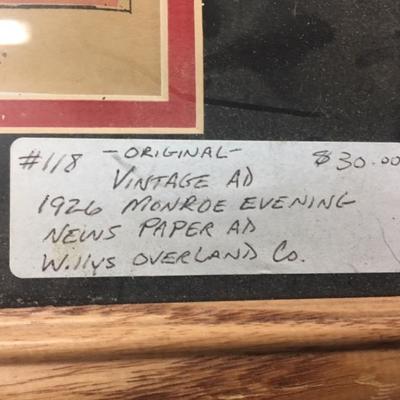 #118 -ORIGINAL- $30.00
VINTAGE AD
1926 MONROE EVENING
NEWS PAPER AD
Willys OVERLAND Co.